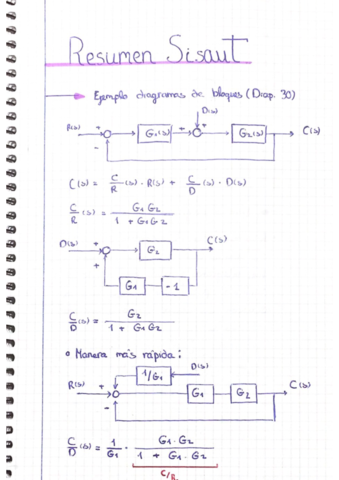 Resumen Sisaut
Ejemplo diagramas de bloques (Diap. 30)
D(s)
R(s) + - G1(s) + + G2(s) C(s)
C(s) = C/R (s) · R(s) + C/D (s) · D(s)
C/R (s) = G1 G2 / 1 + G1 G2
D(s) + + G2 C(s)
G1 -1
C/D (s) = G2 / 1 + G1 G2
Manera más rápida:
1/G1 D(s)
R(s) + + - G1 G2 C(s)
C/D (s) = 1/G1 · G1 · G2 / 1 + G1 · G2
C/R